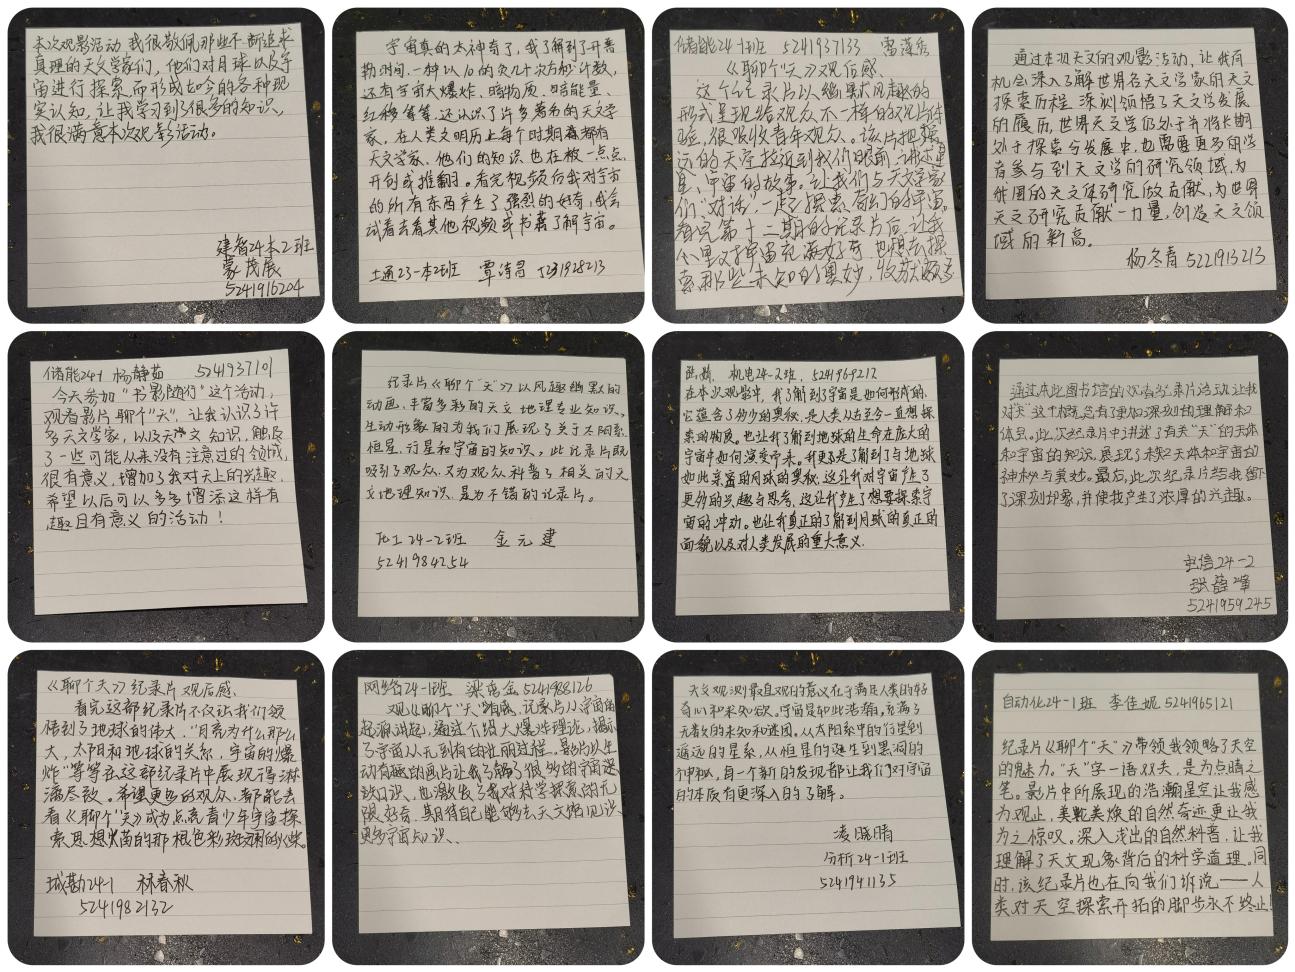 本次观影活动 我很敬佩那些不断追求
真理的天文学家们，他们对月球以及宇
宙进行探索而形成如今的各种现
实认知，让我学习到了很多的知识，
我很满意本次观影活动。
建智24本2班
蒙茂展
5241916204
宇宙真的太神奇了，我了解到了开普
勒时间，一种以10的负几十次方秒计数，
还有宇宙大爆炸、暗物质、暗能量、
红移等等，还认识了许多著名的天文学
家，在人类文明历史上每个时期都有
天文学家，他们的知识也在被一点点
开创或推翻。看完视频后我对宇宙
的所有东西产生了强烈的好奇，我会
试着去看其他视频或书籍了解宇宙。
土通23-本2班 覃诗君 5231928213
储能24-1班 5241937133
《聊个"天"》观后感、
这个纪录片以幽默风趣的
形式呈现给观众不一样的观片体
验，很吸收青年观众。该片把遥
远的天空拉近到我们眼前，讲述星
星、宇宙的故事。让我们与天文学家
们"对话"，一起探索奇幻的宇宙。
看完第十二期的记录片后，让我
心里对宇宙充满好奇，也想去探
索那些未知的奥妙，收获颇多
通过本次天文的观影活动，让我有
机会深入了解世界各天文学家的天文
探索历程，深刻领悟了天文学发展
的履历，世界天文学仍处于并将长期
处于探索与发展中，也需要更多的学
者参与到天文学的研究领域，为
我国的天文体研究做贡献，为世界
天文研究贡献一力量，创造天文领
域的新高。
杨冬青 5221913213
储能24-1 杨静茹 5241937101
今天参加"书影随行"这个活动，
观看影片聊个"天"，让我认识了许
多天文学家，以及天文知识，触及
了一些可能从来没有注意过的领域，
很有意义，增加了我对天上的兴趣，
希望以后可以多多增添这样有
趣且有意义的活动！
纪录片《聊个"天"》以风趣幽默的
动画，丰富多彩的天文地理专业知识，
生动形象的为我们展现了关于太阳系、
恒星、行星和宇宙的知识。此记录片既
吸引了观众，又为观众科普了相关的天
文地理知识，是为不错的记录片。
化工24-2班 金元建
5241984254
机电24-2班，5241969212
在本次观影中，我了解到宇宙是如何形成的，
它蕴含了多少的奥秘，是人类从古至今一直想探
索的物质。也让我了解到地球的生命在庞大的
宇宙中如何演变而来，我更是了解到了与地球
如此亲密的月球的奥秘，这让我对宇宙产生了
更多的兴趣与思考，这让我产生了想要探索宇
宙的冲动。也让我真正的了解到月球的真正的
面貌以及对人类发展的重大意义.
通过本此图书馆的观看纪录片活动，让我
对"天"这个概念有了更加深刻的理解和
体会。此次纪录片中讲述了有关"天"的天体
和宇宙的知识，展现了天体和宇宙的
神秘与美妙。最后，此次纪录片给我留下
了深刻印象，并使我产生了浓厚的兴趣。
电信24-2
5241959245
《聊个天》纪录片观后感、
看完这部纪录片不仅让我们领
悟到了地球的伟大、"月亮为什么那么
大，太阳和地球的关系，宇宙的爆
炸"等等在这部纪录片中展现得淋
漓尽致。希望更多的观众，都能去
看《聊个"天"》成为点亮青少年宇宙探
索思想火苗的那根色彩斑斓的火柴。
城勘24-1 林春秋
5241982132
网络24-1班 梁禹金 5241988126
观《聊个"天"》有感，记录片从宇宙的
起源讲起，通过介绍大爆炸理论，揭示
了宇宙从无到有的壮丽过程。影片以生
动有趣的画片让我了解了很多的宇宙谜
知识，也激发了我对科学探真的无
限好奇，期待自己能够去天文馆见识
更多宇宙知识、
天文观测最直观的意义在于满足人类的好
奇心和求知欲。宇宙是如此浩瀚，充满了
无数的未知和谜团，从太阳系中的行星到
遥远的星系，从恒星的诞生到黑洞的
神秘，每一个新的发现都让我们对宇宙
的本质有更深入的了解。
凌晓晴
分析24-1班
5241941135
自动化24-1班 李佳妮 5241965121
纪录片《聊个"天"》带领我领略了天空
的魅力。"天"字一语双关，是为点睛之
笔。影片中所展现的浩瀚星空让我感
为观止，美轮美奂的自然奇迹更让我
为之惊叹。深入浅出的自然科普，让我
理解了天文现象背后的科学道理。同
时，该纪录片也在向我们诉说——人
类对天空探索开拓的脚步永不终止！